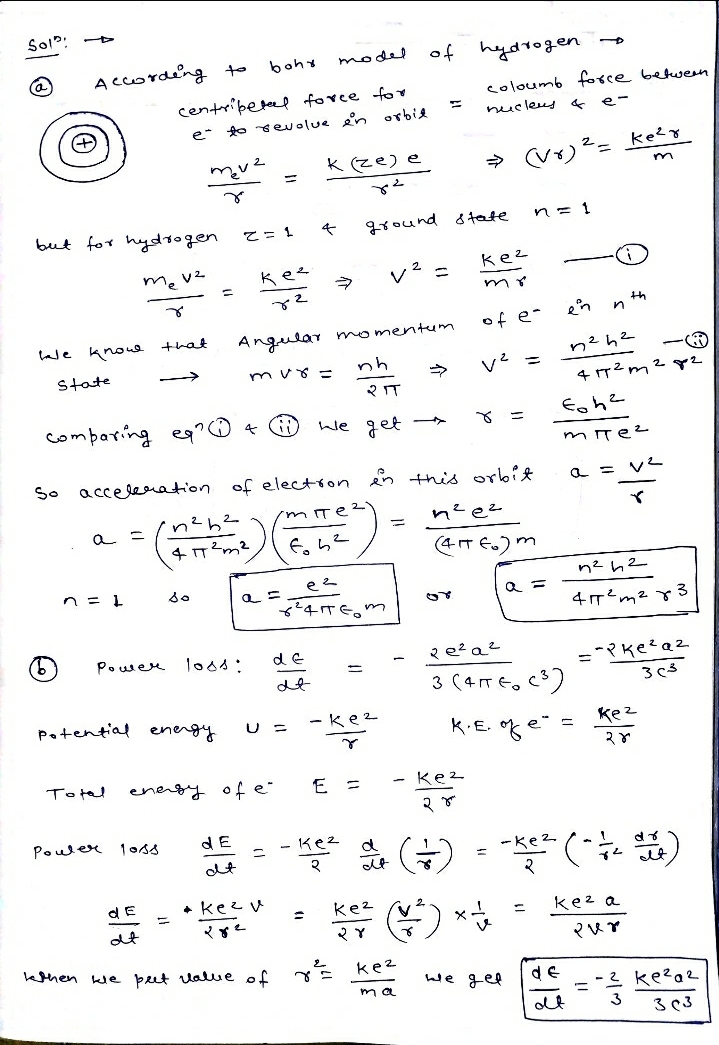 Solⁿ: →
(a) According to bohr model of hydrogen →
centripetal force for e- to revolve in orbit = coloumb force between nucleus & e-
+
mₑv²/r = k(ze)e/r² ⇒ (Vr)² = ke²r/m
but for hydrogen z=1 & ground state n=1
mₑv²/r = ke²/r² ⇒ v² = ke²/mr —(i)
We know that Angular momentum of e- in nth
state → mvr = nh/2π ⇒ v² = n²h²/4π²m²r² —(ii)
comparing eqⁿ (i) & (ii) we get → r = ε₀h²/mπe²
So acceleration of electron in this orbit a = v²/r
a = (n²h²/4π²m²)(mπe²/ε₀h²) = n²e²/(4πε₀)m
n=1 so a = e²/r²4πε₀m or a = n²h²/4π²m²r³
(b) Power loss: dE/dt = - 2e²a²/3(4πε₀c³) = -2ke²a²/3c³
Potential energy U = -ke²/r K.E. of e- = ke²/2r
Total energy of e- E = - ke²/2r
Power loss dE/dt = -ke²/2 d/dt (1/r) = -ke²/2 (-1/r² dr/dt)
dE/dt = ke²v/2r² = ke²/2r (v²/r) × 1/v = ke²a/2vr
When we put value of r² = ke²/ma we get dE/dt = -2/3 ke²a²/3c³